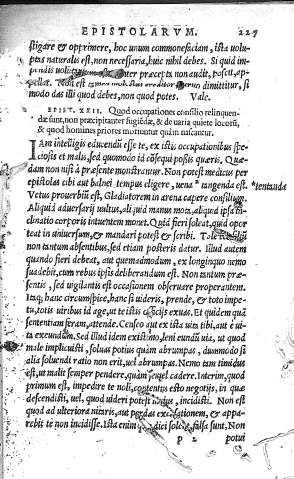 EPISTOLARVM. 227
stigare & opprimere, hoc unum commonefaciam, ista volu=
ptas naturalis est, non necessaria, huic nihil debes. Si quid im=
præcepta non audit, poscit, ap=
pellat. Non est dimittitur, si
modo das illi quod debes, non quod potes. Vale.
EPIST. XXII. Quod occupationes consilio relinquen-
dæ sunt, non præcipitanter fugiēdæ, & de varia quiete locorū,
& quod homines priores moriuntur quàm nascantur.
IAm intelligis educendū esse te, ex istis occupationibus spe=
ciosis et malis, sed quomodo id cōsequi possis quæris. Quæ=
dam non nisi à præsente monstrantur. Non potest medicus per
epistolas cibi aut balnei tempus eligere, uena tangenda est. tentanda
Vetus prouerbiū est, Gladiatorem in arena capere consilium.
Aliquid aduersarij uultus, aliquid manus mota, aliquid ipsa in
clinatio corporis intuentem monet. Quid fieri soleat, quid opor
teat in uniuersum, & mandari potest & scribi. Tale
non tantum absentibus, sed etiam posteris datur. Illud autem
quando fieri debeat, aut quemadmodum, ex longinquo nemo
suadebit, cum rebus ipsis deliberandum est. Non tantum præ=
sentis, sed uigilantis est occasionem obseruare properantem.
Itaq; hanc circumspice, hanc si uideris, prende, & toto impe=
tu, totis uiribus id age, ut te istis exuas. Et quidem quā
sententiam feram, attende. Censeo aut ex ista uita tibi, aut è ui=
ta exeundum. Sed illud idem existimo, leni eundū uia, ut quod
male implicuisti, soluas potius quàm abrumpas, dummodo si
alia soluendi ratio non erit, uel abrumpas. Nemo tam timidus
est, ut malit semper pendere, quàm semel cadere. Interim, quod
primum est, impedire te noli, contentus esto negotijs, in quæ
descendisti, uel, quod uideri potest, incidisti. Non est
quod ad ulteriora nitaris, aut perdas excusationem, & appa=
rebit te non incidisse. Ista enim quæ dici solent, falsa sunt. Non
P 2 potui